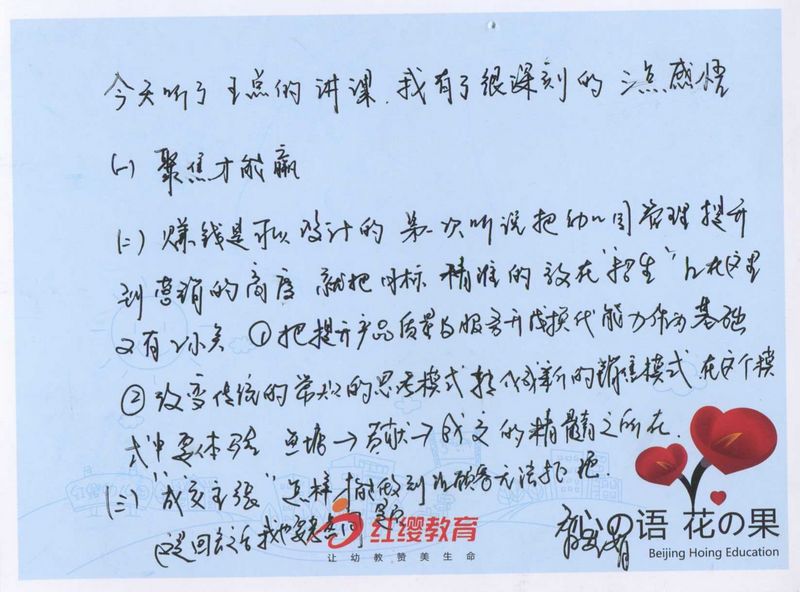 今天听了王总的讲课.我有了很深刻的三点感悟
(一)聚焦才能赢
(二)赚钱是可以设计的 第一次听说把幼儿园管理提升
到营销的高度 就把目标 精准的放在"招生"上在这里
又有2小点 ①把提升产品质量与服务升成换代能力作为基础
②改变传统的常规的思考模式转化成新的销售模式在这个模
式中要体验 鱼塘→贡献→成交的精髓之所在.
(三)"成交主张"怎样才能做到让顾客无法拒绝
这是回去之后我也要去
红缨教育
让幼教赞美生命
心の语 花の果
Beijing Hoing Education